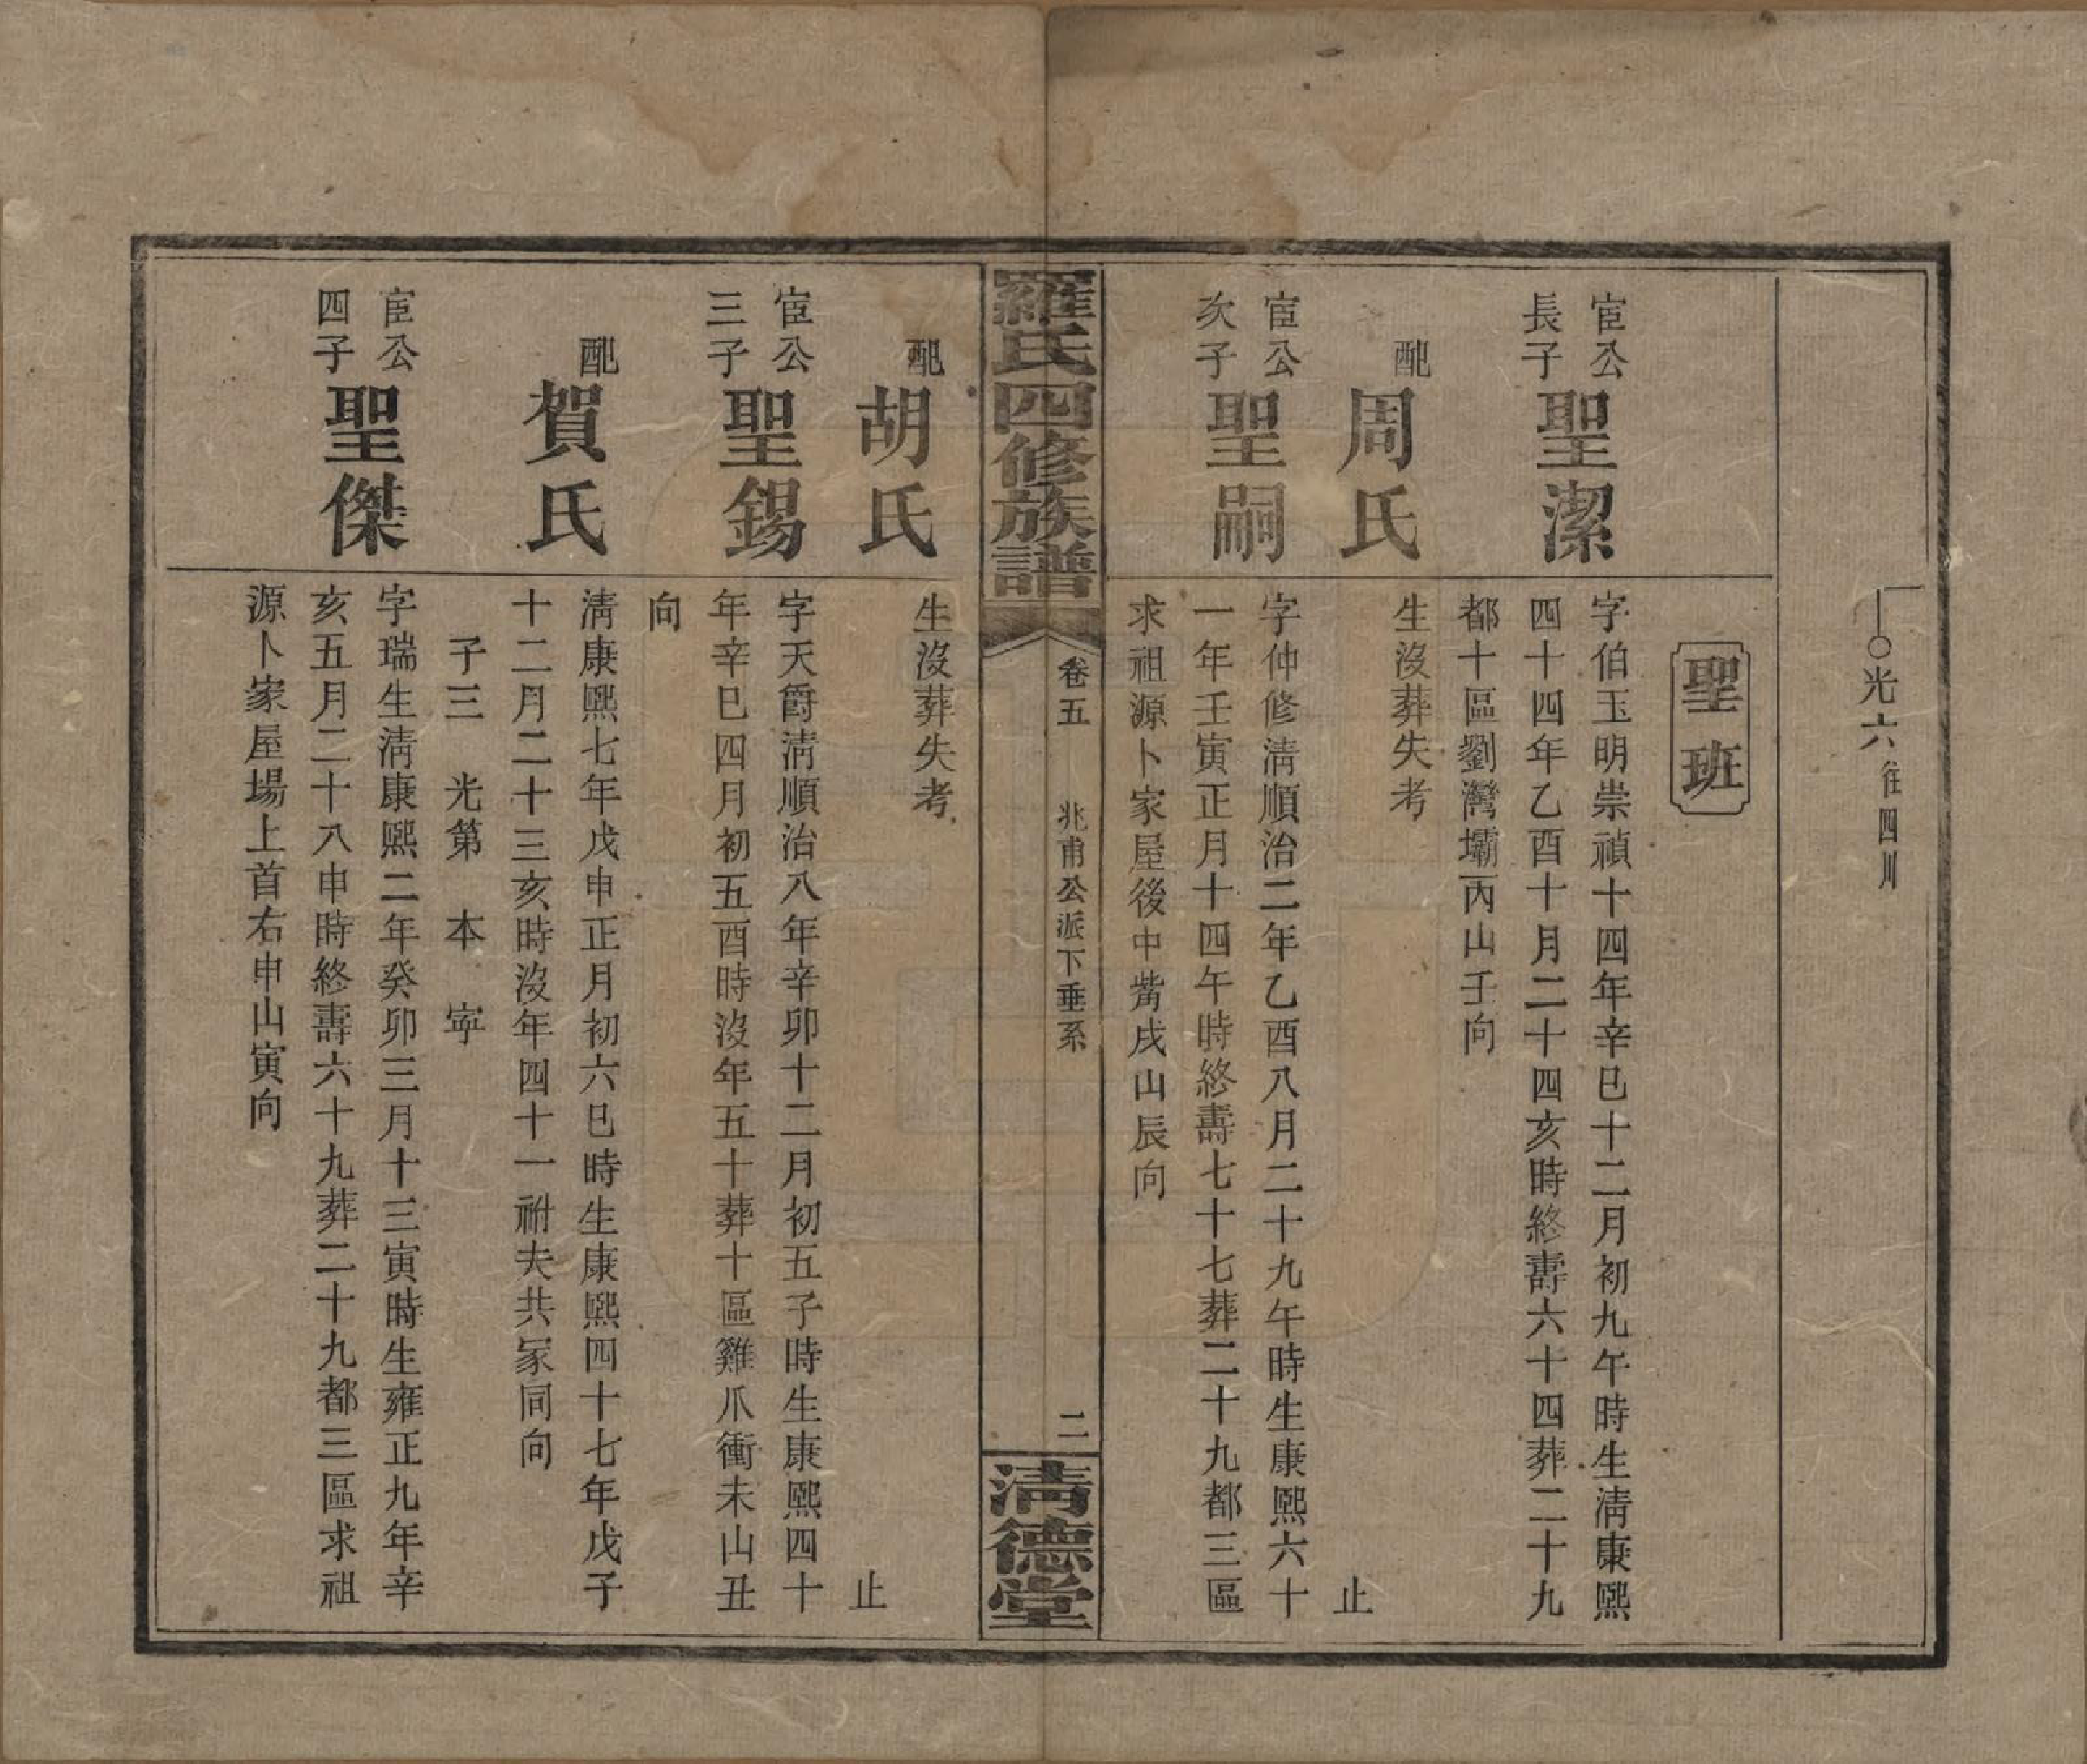 光六往四川
聖班
宦公
長子
聖潔
字伯玉明崇禎十四年辛巳十二月初九午時生清康熙
四十四年乙酉十月二十四亥時終壽六十四葬二十九
都十區劉灣壩丙山壬向
配
周氏
生沒葬失考
止
宦公
次子
聖嗣
字仲修清順治二年乙酉八月二十九午時生康熙六十
一年壬寅正月十四午時終壽七十七葬二十九都三區
求祖源卜家屋後中嘴戌山辰向
羅氏四修族譜
卷五
兆甫公派下垂系
二
清德堂
配
胡氏
生沒葬失考
止
宦公
三子
聖錫
字天爵清順治八年辛卯十二月初五子時生康熙四十
年辛巳四月初五酉時沒年五十葬十區雞爪衝未山丑
向
配
賀氏
清康熙七年戊申正月初六巳時生康熙四十七年戊子
十二月二十三亥時沒年四十一祔夫共冢同向
子三 光第 本 寧
宦公
四子
聖傑
字瑞生清康熙二年癸卯三月十三寅時生雍正九年辛
亥五月二十八申時終壽六十九葬二十九都三區求祖
源卜家屋場上首右申山寅向